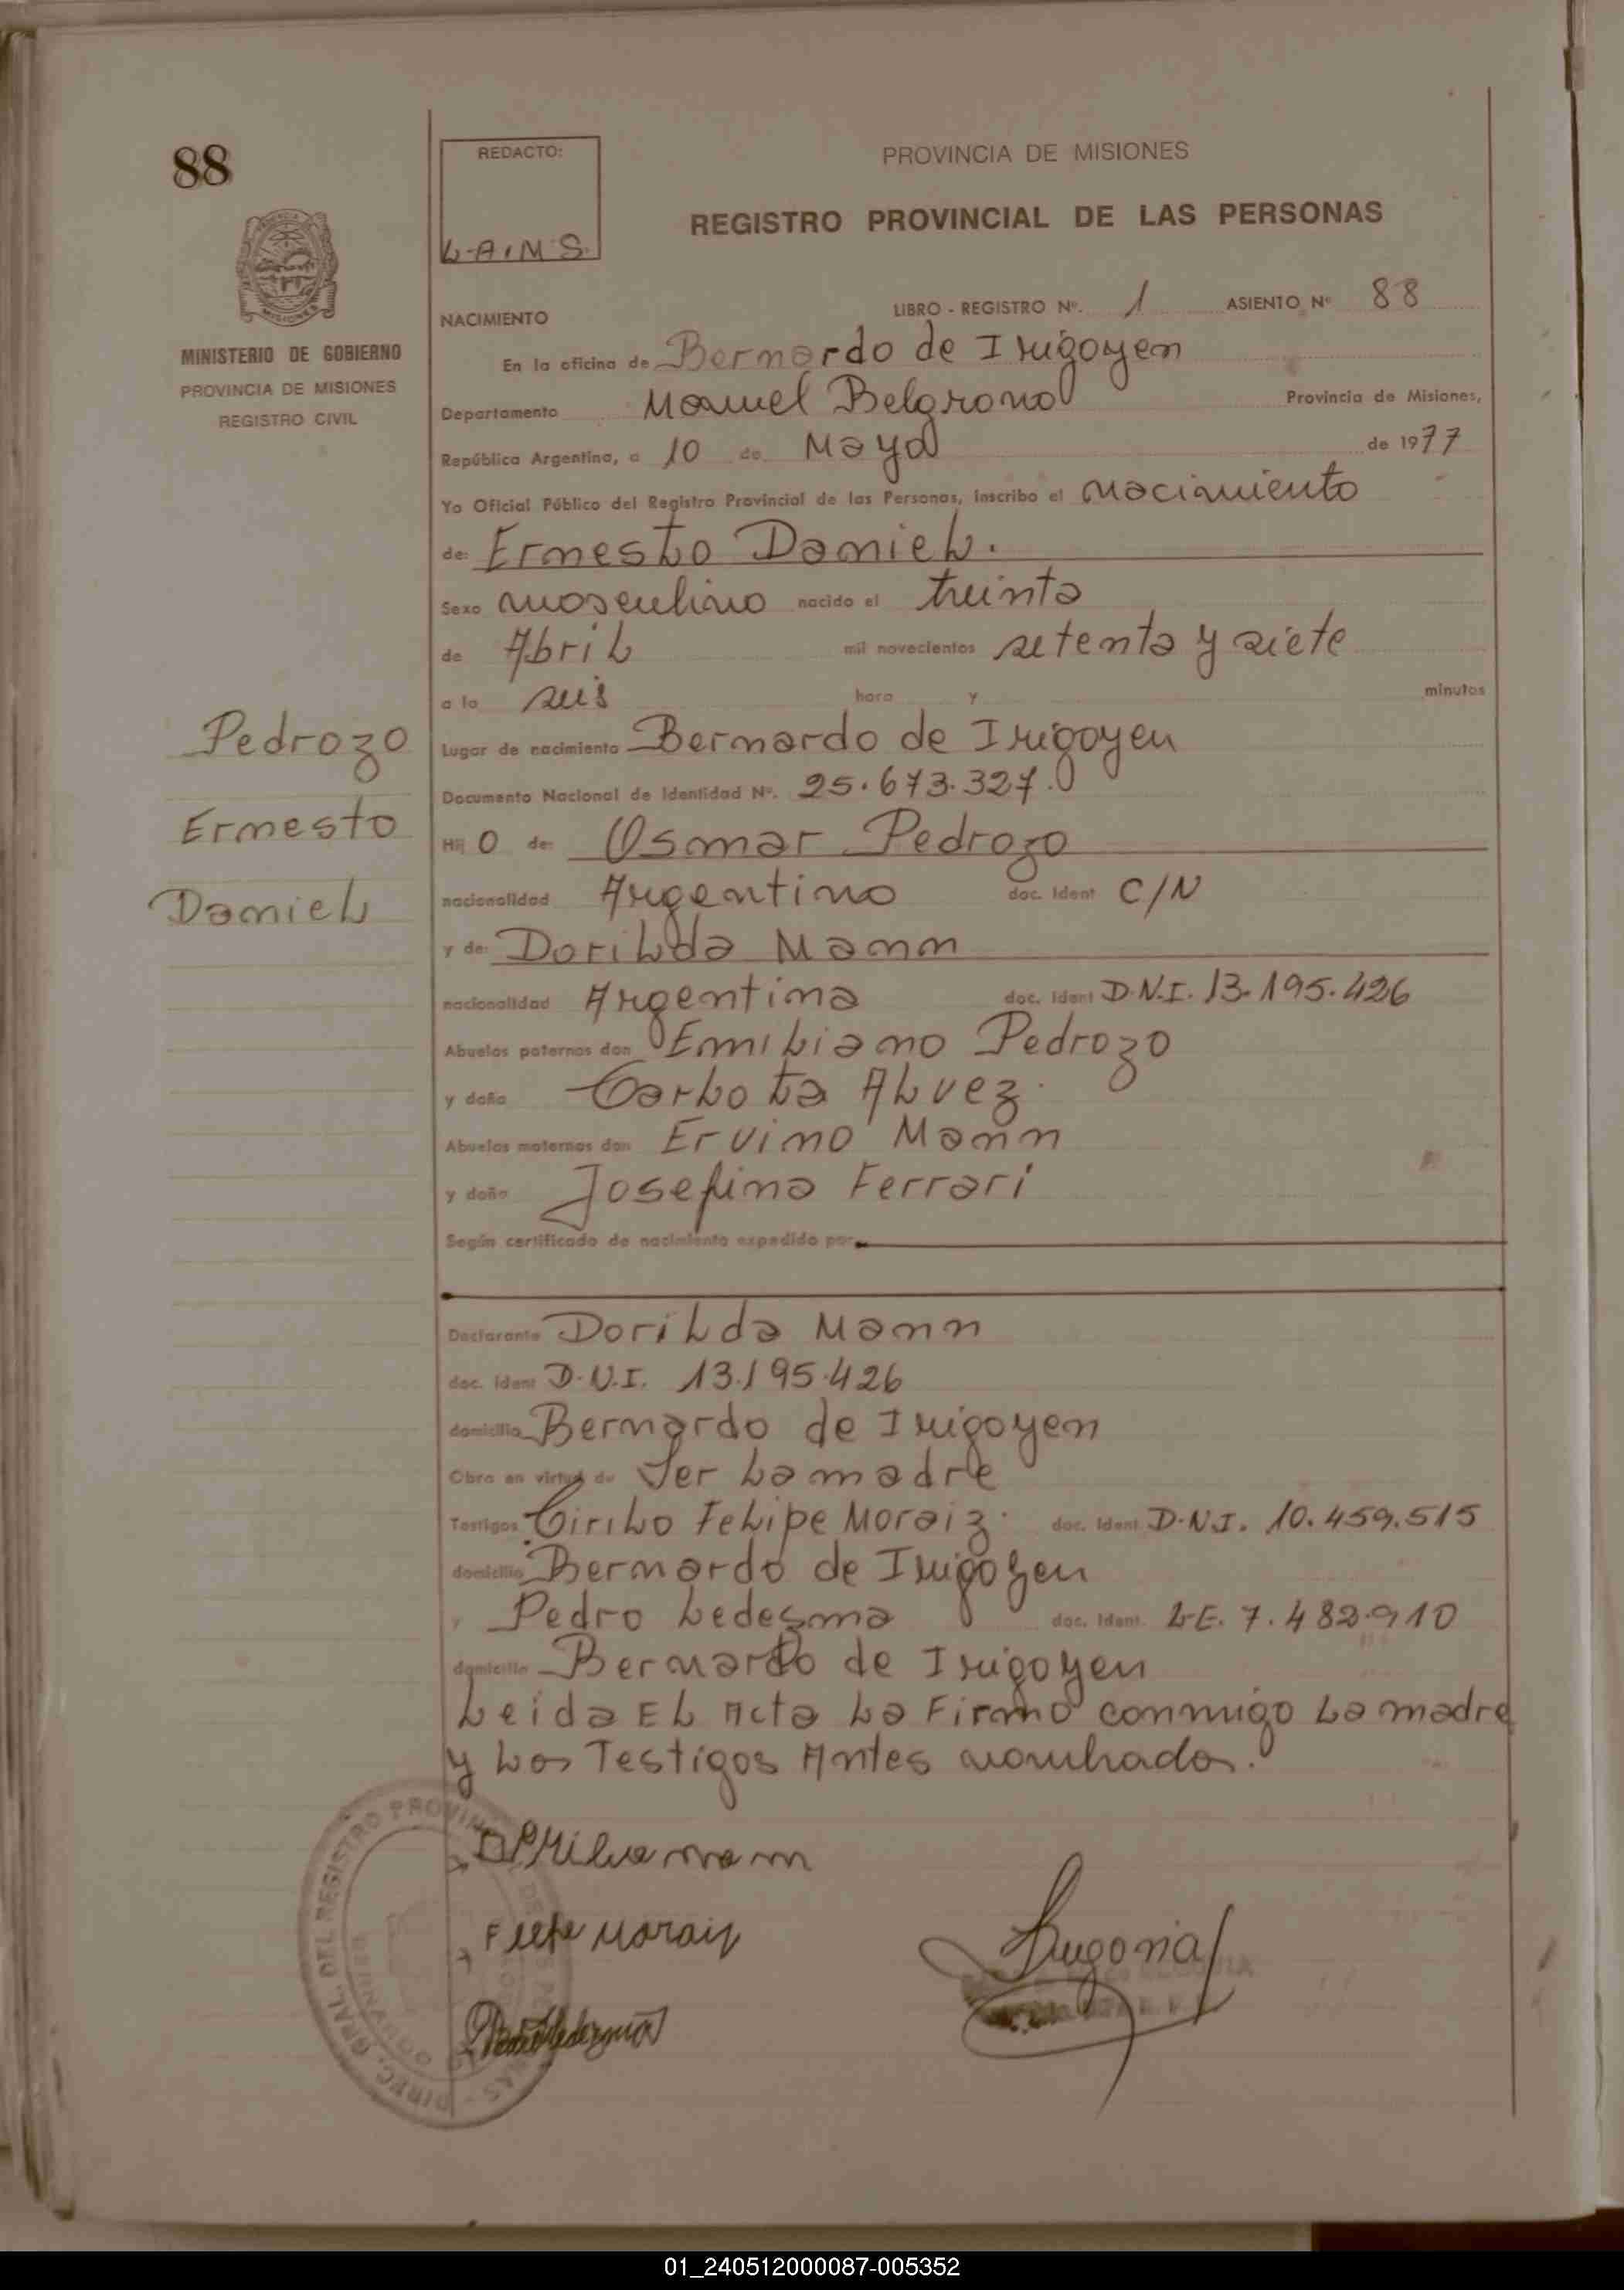 88
REDACTO:
L.A.M.S.
PROVINCIA DE MISIONES
REGISTRO PROVINCIAL DE LAS PERSONAS
MINISTERIO DE GOBIERNO
PROVINCIA DE MISIONES
REGISTRO CIVIL
LIBRO - REGISTRO Nº. 1 ASIENTO Nº 88
NACIMIENTO
En la oficina de Bernardo de Irigoyen
Departamento Manuel Belgrano Provincia de Misiones,
República Argentina, a 10 de Mayo de 1977
Yo Oficial Público del Registro Provincial de las Personas, inscribo el Nacimiento
de: Ernesto Daniel.
Sexo masculino nacido el treinta
de Abril mil novecientos setenta y siete
a la seis hora y minutos
Pedrozo
Ernesto
Daniel
Lugar de nacimiento Bernardo de Irigoyen
Documento Nacional de Identidad Nº. 25.673.327.
Hij o de: Osmar Pedrozo
nacionalidad Argentino doc. Ident C/N
y de: Dorilda Mann
nacionalidad Argentina doc. Ident D.N.I. 13.195.426
Abuelos paternos don Emiliano Pedrozo
y doña Carlota Alvez.
Abuelos maternos don Ervino Mann
y doña Josefina Ferrari
Según certificado de nacimiento expedido por:
Declarante Dorilda Mann
doc. Ident D.N.I. 13.195.426
domicilio Bernardo de Irigoyen
Obra en virtud de Ser La madre
Testigos Cirilo Felipe Moraiz. doc. Ident D.N.I. 10.459.515
domicilio Bernardo de Irigoyen
y Pedro Ledesma doc. Ident. L.E. 7.482.910
domicilio Bernardo de Irigoyen
Leida El Acta La Firmo conmigo La madre
y Los Testigos Antes nombrados.
DIREC. GRAL. DEL REGISTRO PROVIN
01_240512000087-005352